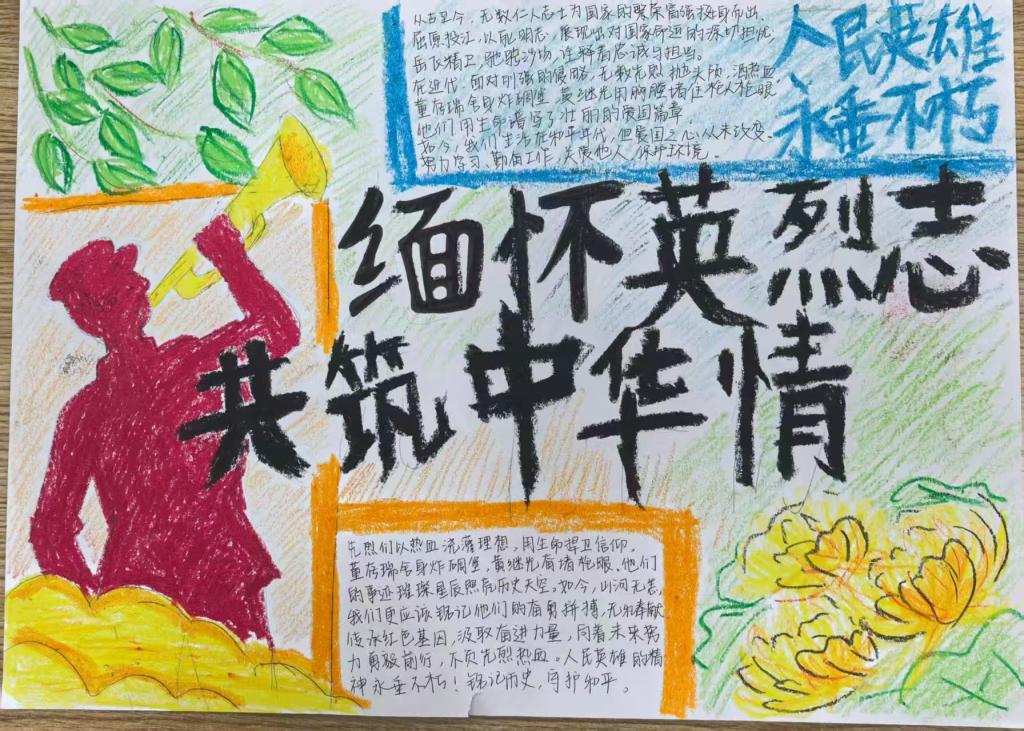 从古至今，无数仁人志士为国家的繁荣富强挺身而出。
屈原投江，以死明志，展现出对国家命运的深切担忧
岳飞精卫，驰骋沙场，诠释着忠诚与担当。
在近代，面对列强的侵略，无数先烈抛头颅，洒热血
董存瑞舍身炸碉堡，黄继光用胸膛堵住枪从枪眼
他们用生命谱写了壮丽的爱国篇章。
如今，我们生活在和平年代，但爱国之心从未改变。
努力学习、勤奋工作，关爱他人，保护环境。
人民英雄
永垂不朽
缅怀英烈志
共筑中华情
先烈们以热血浇灌理想，用生命捍卫信仰。
董存瑞舍身炸碉堡，黄继光奋堵枪眼，他们
的事迹璀璨星辰照亮历史天空。如今，山河无恙，
我们更应该铭记他们的奋勇拼搏，无私奉献
传承红色基因，汲取奋进力量，向着未来努
力勇毅前行，不负先烈热血。人民英雄的精
神永垂不朽！铭记历史，守护和平。